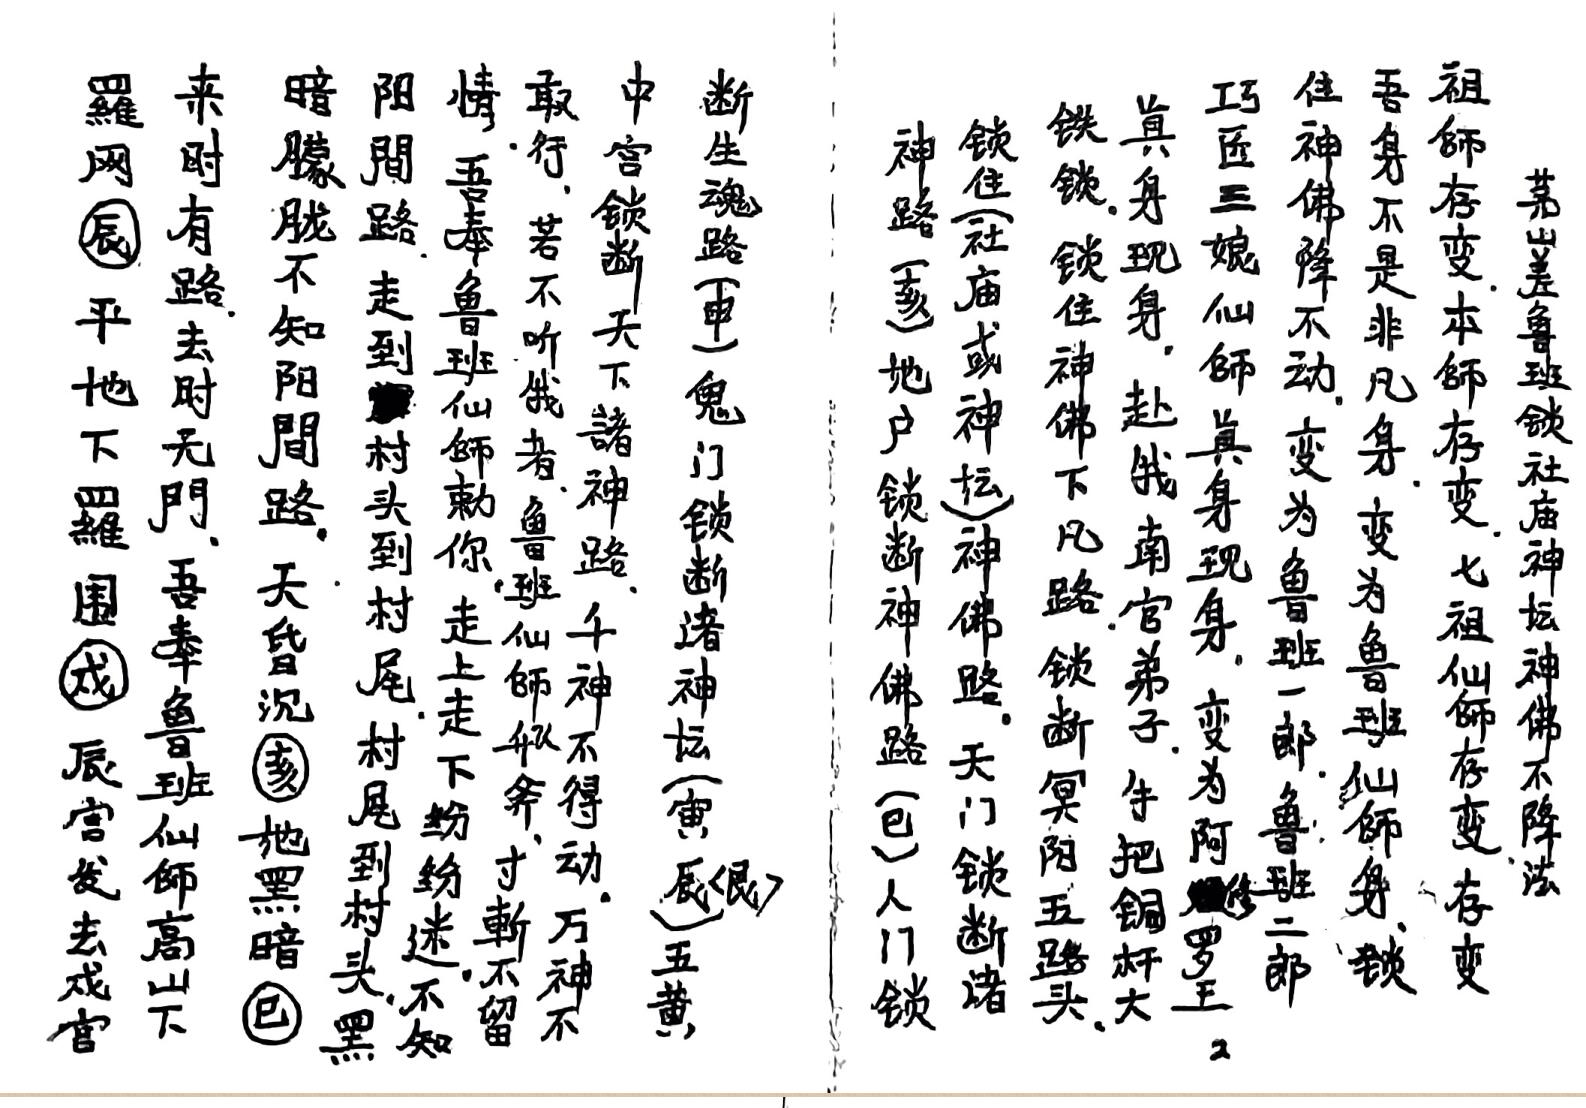 茅山差魯班锁社庙神坛神佛不降法
祖師存变.本師存变.七祖仙師存变.存变
吾身不是非凡身.变为魯班仙師身、锁
住神佛降不动.变为魯班一郎.魯班二郎
巧匠三娘仙師真身现身.变为阿修罗王
真身现身.赴我南宫弟子.手把铜杆大
铁锁.锁住神佛下凡路.锁断冥阳五路头.
锁住(社庙或神坛)神佛路.天门锁断诸
神路(亥)地户锁断神佛路(巳)人门锁
2
断生魂路(申)鬼门锁断诸神坛(寅,辰<艮>)五黄,
中宫锁断天下諸神路.千神不得动.万神不
敢行.若不听我者.魯班仙師斧,寸斬不留
情.吾奉魯班仙師勅你.走上走下纷纷迷.不知
阳間路.走到村头到村尾.村尾到村头.黑
暗朦胧不知阳間路.天昏沉(亥)地黑暗(巳)
来时有路.去时无門.吾奉魯班仙師高山下
羅网(辰)平地下羅围(戌)辰宫发去戌宫